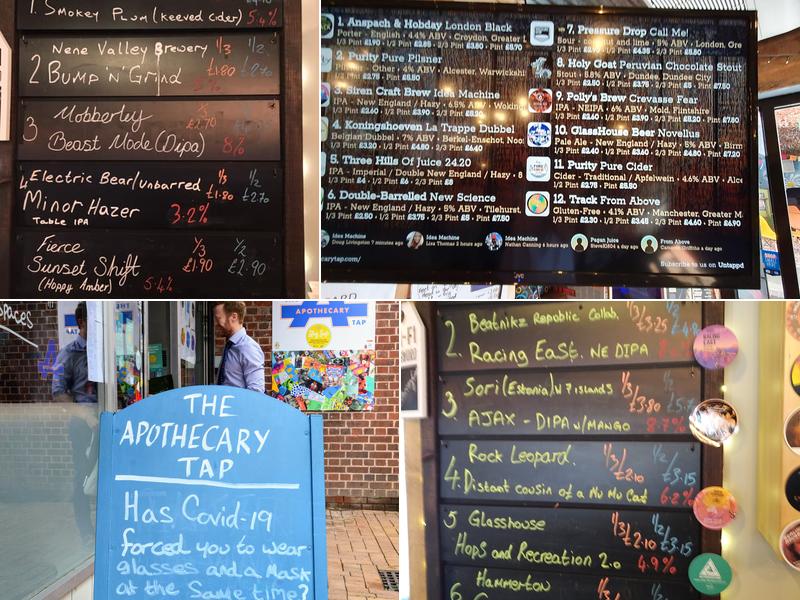 1. Smokey Plum (keeved cider) 5.4%
Nene Valley Brewery 1/3 1/2
2 Bump 'n' Grind £1.80
3 Mobberley
£2.70
Beast Mode (Dipa) 8%
4 Electric Bear/unbarred 1/3 1/2
£1.80 £2.70
Minor Hazer 3.2%
Table IPA
Fierce 1/3 1/2
Sunset Shift £1.90 £2.90
(Hoppy Amber) 5.4%
1. Anspach & Hobday London Black
Porter - English • 4.4% ABV • Croydon, Greater L
2. Purity Pure Pilsner
Pilsner - Other • 4% ABV • Alcester, Warwickshi
1/2 Pint £2.75 • Pint £5.50
3. Siren Craft Brew Idea Machine
IPA - New England / Hazy • 6.5% ABV • Woking
4. Koningshoeven La Trappe Dubbel
Belgian Dubbel • 7% ABV • Berkel-Enschot, Noo
5. Three Hills Of Juice 24.20
IPA - Imperial / Double New England / Hazy • 8
1/3 Pint £4 • 1/2 Pint £6 • 2/3 Pint £8
6. Double-Barrelled New Science
IPA - New England / Hazy • 5% ABV • Tilehurst,
1/3 Pint £2.50 • 1/2 Pint £3.75 • 2/3 Pint £5 • Pint £7.50
7. Pressure Drop Call Me!
Sour - coconut and lime • 5% ABV • London, Gre
8. Holy Goat Peruvian Chocolate Stout
Stout • 5.8% ABV • Dundee, Dundee City
1/3 Pint £2.50 • 1/2 Pint £3.75 • 2/3 Pint £5 • Pint £7.50
9. Polly's Brew Crevasse Fear
IPA - NEIPA • 6% ABV • Mold, Flintshire
1/3 Pint £2.60 • 1/2 Pint £3.90 • 2/3 Pint £5.20 • Pint £7.80
10. GlassHouse Beer Novellus
Pale Ale - New England / Hazy • 5% ABV • Birm
1/3 Pint £2.40 • 1/2 Pint £3.60 • 2/3 Pint £4.80 • Pint £7.20
11. Purity Pure Cider
Cider - Traditional / Apfelwein • 4.6% ABV • Alce
1/2 Pint £2.75 • Pint £5.50
12. Track From Above
Gluten-Free • 4.1% ABV • Manchester, Greater M
1/3 Pint £2.30 • 1/2 Pint £3.45 • 2/3 Pint £4.60 • Pint £6.90
Idea Machine
Doug Livingston 7 minutes ago
Idea Machine
Lisa Thomas 2 hours ago
Idea Machine
Nathan Canning 6 hours ago
Pagan Juice
From Above
a day ago
arytap.com/
Subscribe to us on Untappd
paces
APOTHECARY
TAP
THE
APOTHECARY
TAP
Has Covid-19
forced you to wear
glasses and a mask
at the same time?
Beatnikz Republic Collab. 1/3 1/2
£3.25
2. Racing East. NE DIPA
RACING EAST
Sori (Estonia) w 7 islands 1/3 1/2
3 £3.80
AJAX - DIPA w/MANGO 8.7%
Rock Leopard. 1/3 1/2
4. £2.10 £3.15
Distant cousin of a Mu Mu Cat 6.2%
5 Glasshouse 1/3 1/2
£2.10 £3.15
Hops and Recreation 2.0 4.9%
6 Hammerton 1/3 1/2